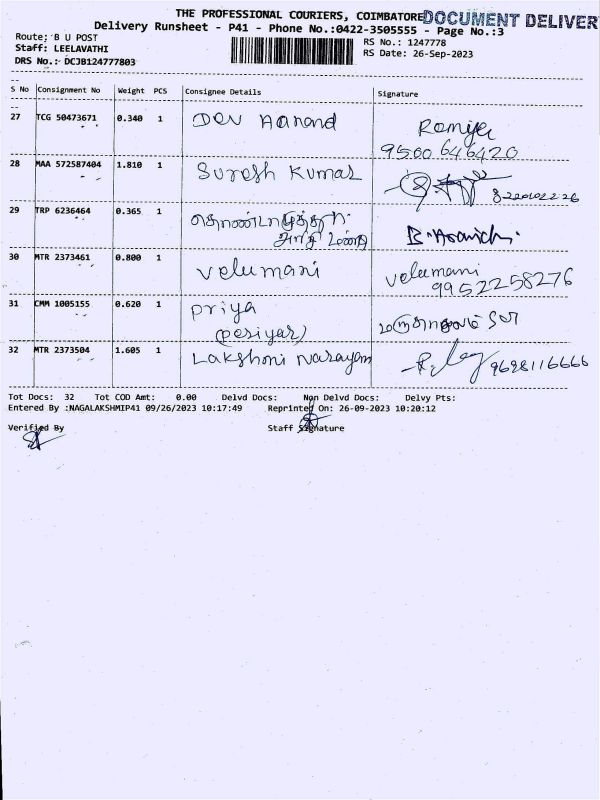 THE PROFESSIONAL COURIERS, COIMBATORE DOCUMENT DELIVER
Delivery Runsheet - P41 - Phone No.:0422-3505555 - Page No.:3
Route: B U POST
RS No.: 1247778
Staff: LEELAVATHI
RS Date: 26-Sep-2023
DRS No.: DCJB124777803
S No Consignment No Weight PCS Consignee Details Signature
27 TCG 50473671 0.340 1 Dev Aanand Ramya
9500646420
28 MAA 572587404 1.810 1 Suresh Kumar
29 TRP 6236464 0.365 1
30 MTR 2373461 0.800 1 Velumani Velumani
9952258276
31 CMM 1005155 0.620 1 Priya
(Periyar)
32 MTR 2373504 1.605 1 Lakshmi Narayanan 9698116666
Tot Docs: 32 Tot COD Amt: 0.00 Delvd Docs: Non Delvd Docs: Delvy Pts:
Entered By :NAGALAKSHMIP41 09/26/2023 10:17:49 Reprinted On: 26-09-2023 10:20:12
Verified By Staff Signature